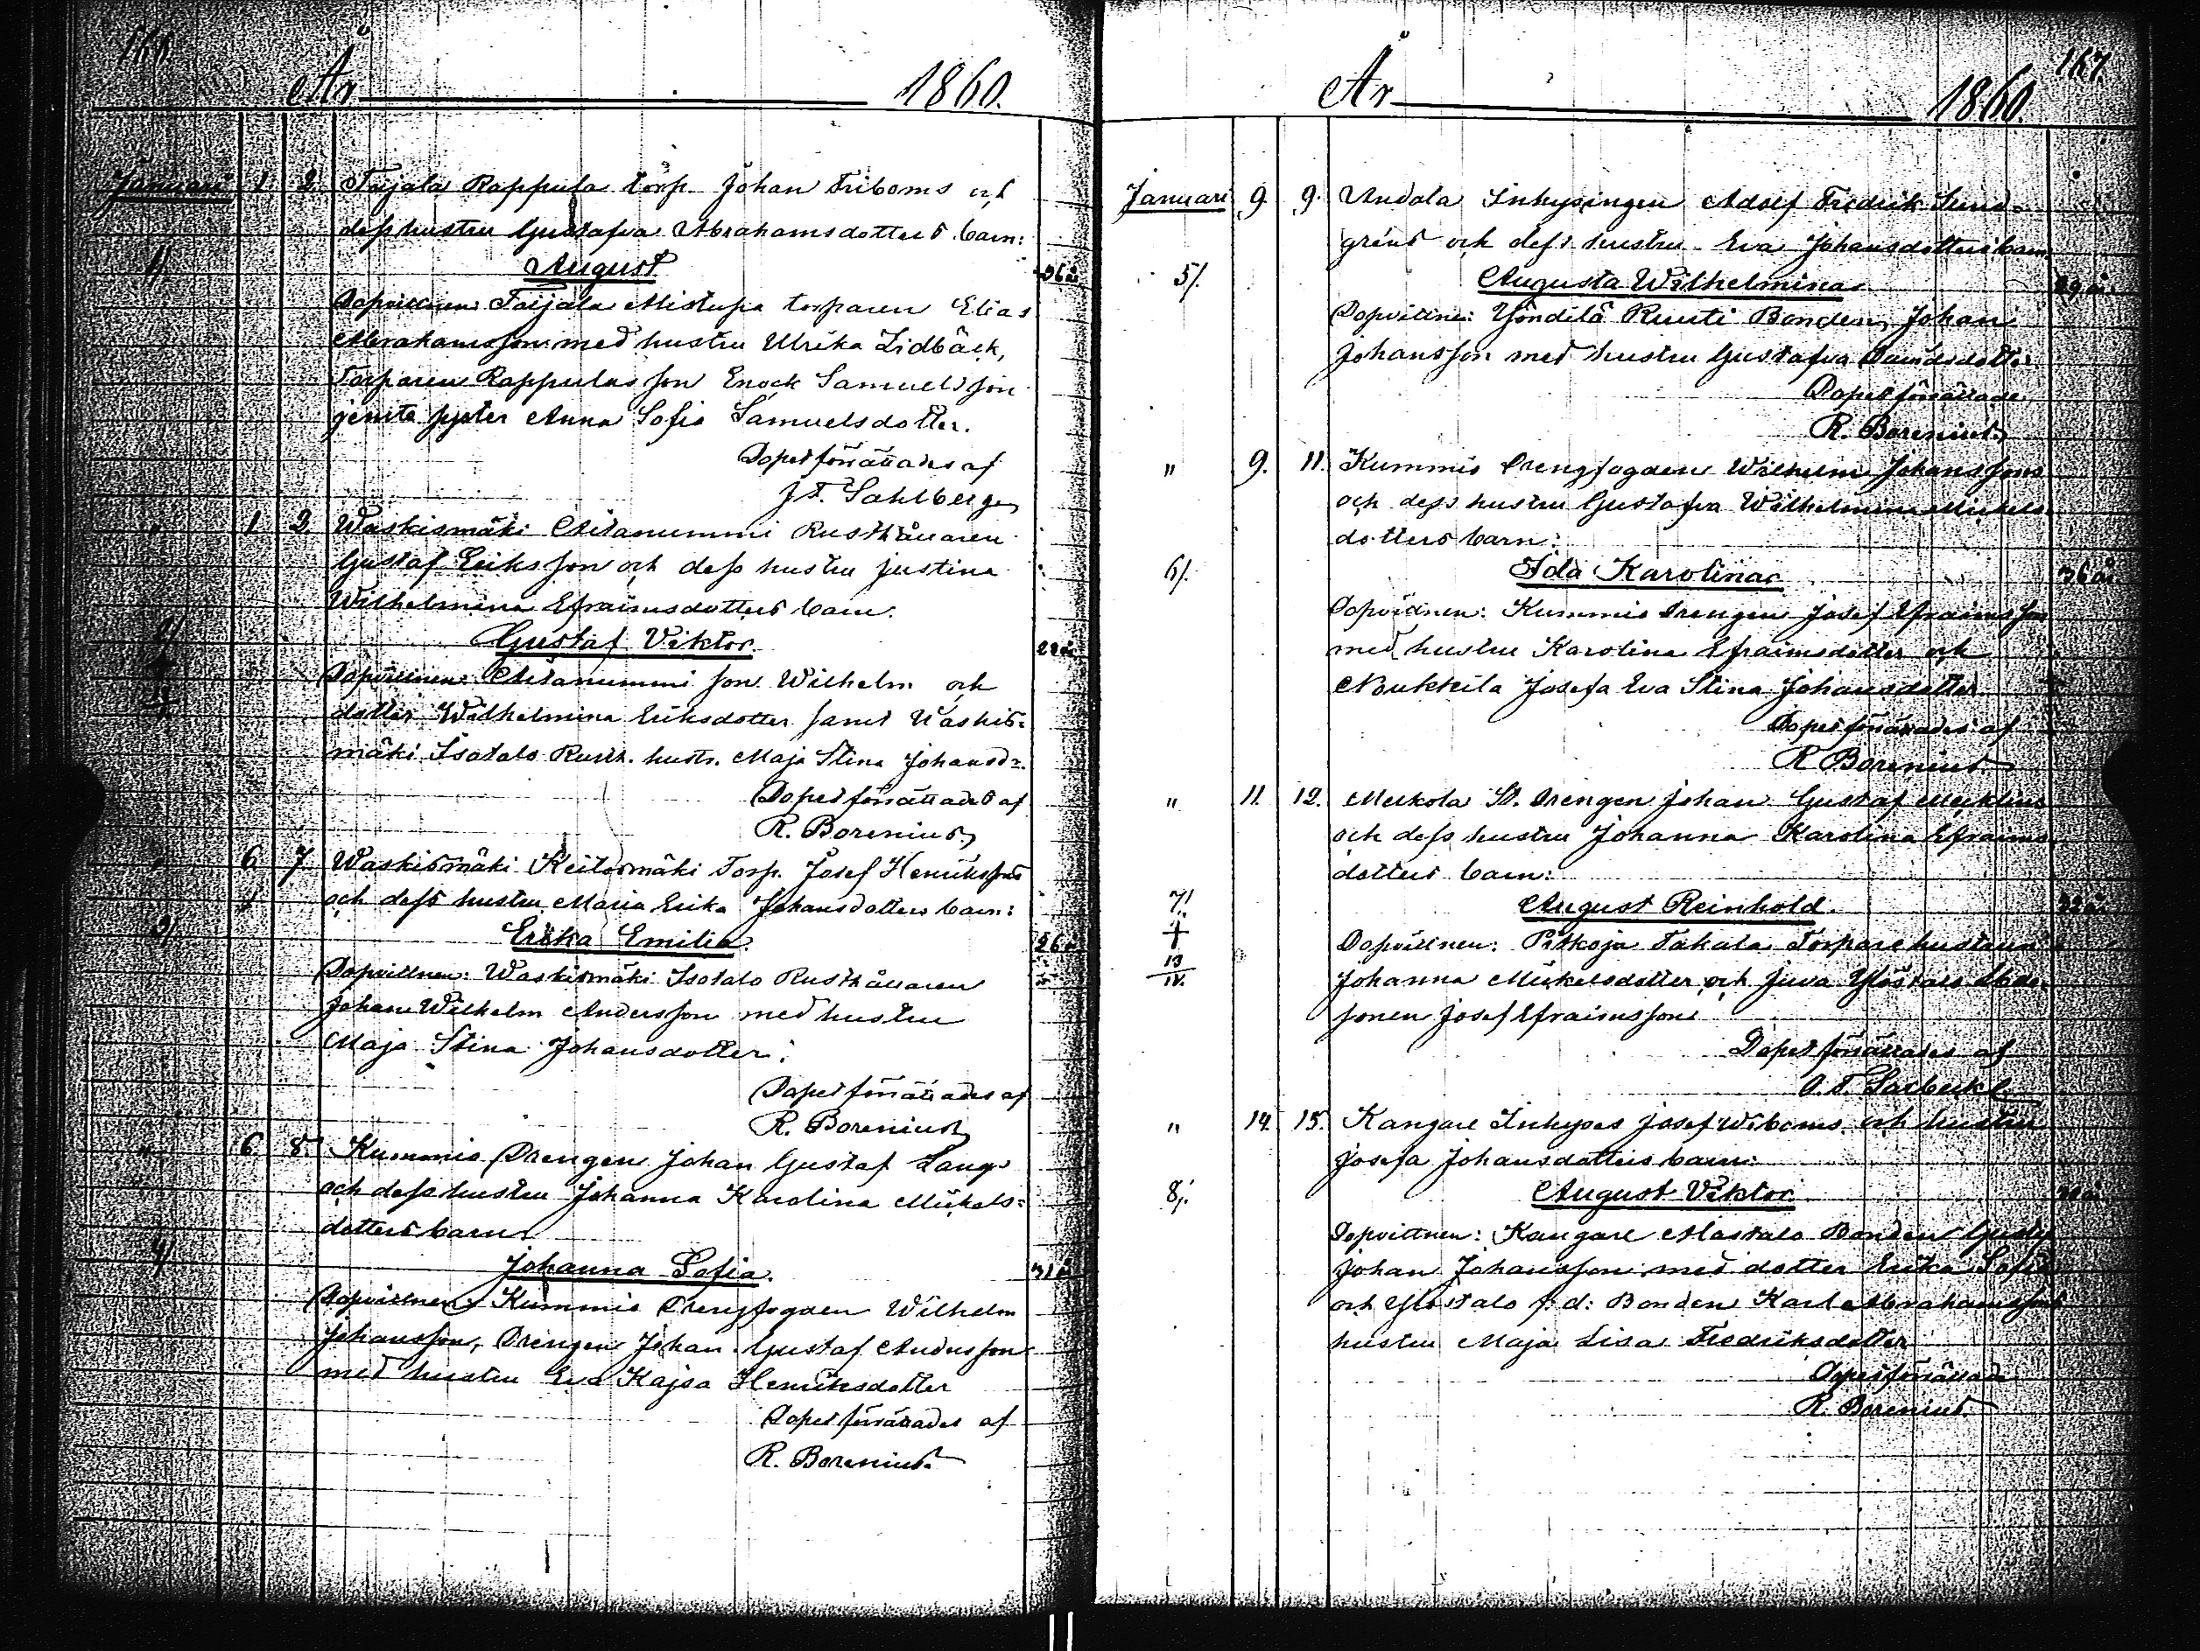 År 1860.
Januari 1. 2. Taijala Rappula torp. Johan Friboms och
dess hustru Gustafva Abrahamsdotters barn:
1/ August 36 år
Dopvittnen: Taijala Mistupa torparen Elias
Abrahamsson med hustru Ulrika Lidbäck,
Torparen Rappulas son Enock Samuelsson
jemte syster Anna Sofia Samuelsdotter.
Dopet förrättades af
J. F. Sahlberg
" 1 2 Waskismäki Rusthållaren
Gustaf Eriksson och dess hustru Justina
Wilhelmina Efraimsdotters barn.
2/ Gustaf Viktor
Dopvittnen: son Wilhelm och
dotter Wilhelmina Eriksdotter samt Waskis=
mäki Isotalo Rusth. hustr. Maja Stina Johansdr.
Dopet förrättades af
R. Borenius
" 6 7 Waskismäki Keitosmäki Torp. Josef Henrikssons
och dess hustru Maria Erika Johansdotters barn:
3/ Erika Emilia 26 år
Dopvittnen: Waskismäki Isotalo Rusthållaren
Johan Wilhelm Andersson med hustru
Maja Stina Johansdotter.
Dopet förrättades af
R. Borenius
" 6. 8. Kummis Drengen Johan Gustaf Langs
och dess hustru Johanna Karolina Mickels=
dotters barn
4/ Johanna Sofia. 31 år
Dopvittnen: Kummis Drengfogden Wilhelm
Johansson, Drengen Johan Gustaf Andersson
med hustru Eva Kajsa Henriksdotter
Dopet förrättades af
R. Borenius.
167.
År 1860.
Januari 9. 9. Undola Inhysingen Adolf Fredrik Sund-
gréns och dess hustru Eva Johansdotters barn
5/. Augusta Wilhelmina
Dopvittne: Yöndilä Ruuti Bonden Johan
Johansson med hustru Gustafva Davidsdotter
Dopet förrättade
R. Borenius
" 9. 11. Kummis Drengfogden Wilhelm Johanssons
och dess hustru Gustafva Wilhelmina Mickels
dotters barn:
6/. Ida Karolina 36 år
Dopvidnen: Kummis Drengen Josef Efraimsson
med hustru Karolina Efraimsdotter och
Noukkila Josefa Eva Stina Johansdotter
Dopet förrättades af
R Borenius
" 11. 12. St. Drengen Johan Gustaf
och dess hustru Johanna Karolina Efraims
dotters barn:
7/ August Reinhold.
†
13
IV.
Dopvittnen: Pitkoja Takala Torpare hustrun
Johanna Mickelsdotter och Juva Ylöstalo
sonen Josef Efraimsson
Dopet förrättades af
" 14. 15. Kangare Inhyses Josef Wiboms och hustru
Josefa Johansdotters barn:
8/. August Viktor
Dopvittnen: Kangare Alastalo Bonden Gustaf
Johan Johansson med dotter Erika Sofia
och Ylöstalo f. d. Bonden Karl Abrahamssons
hustru Maja Lisa Fredriksdotter
Dopet förrättade
R. Borenius.